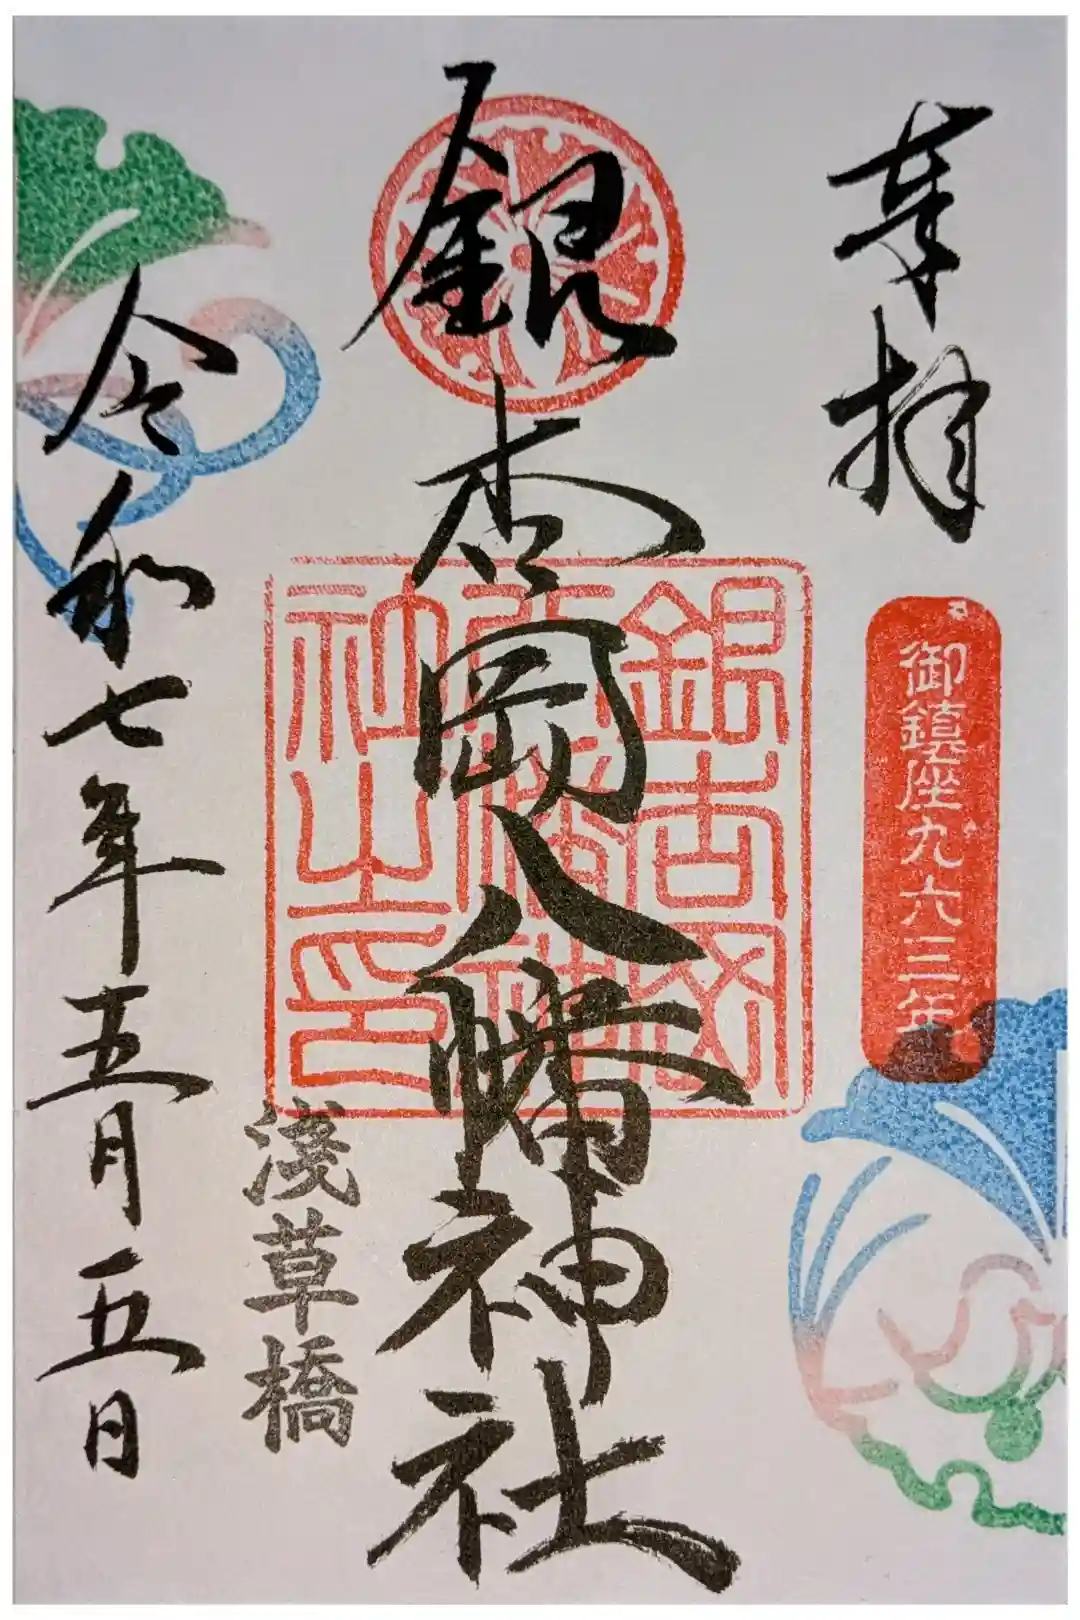 奉拝
御鎮座九六三年
銀杏岡八幡神社
銀杏岡
八幡神
社之印
淺草橋
令和七年五月五日